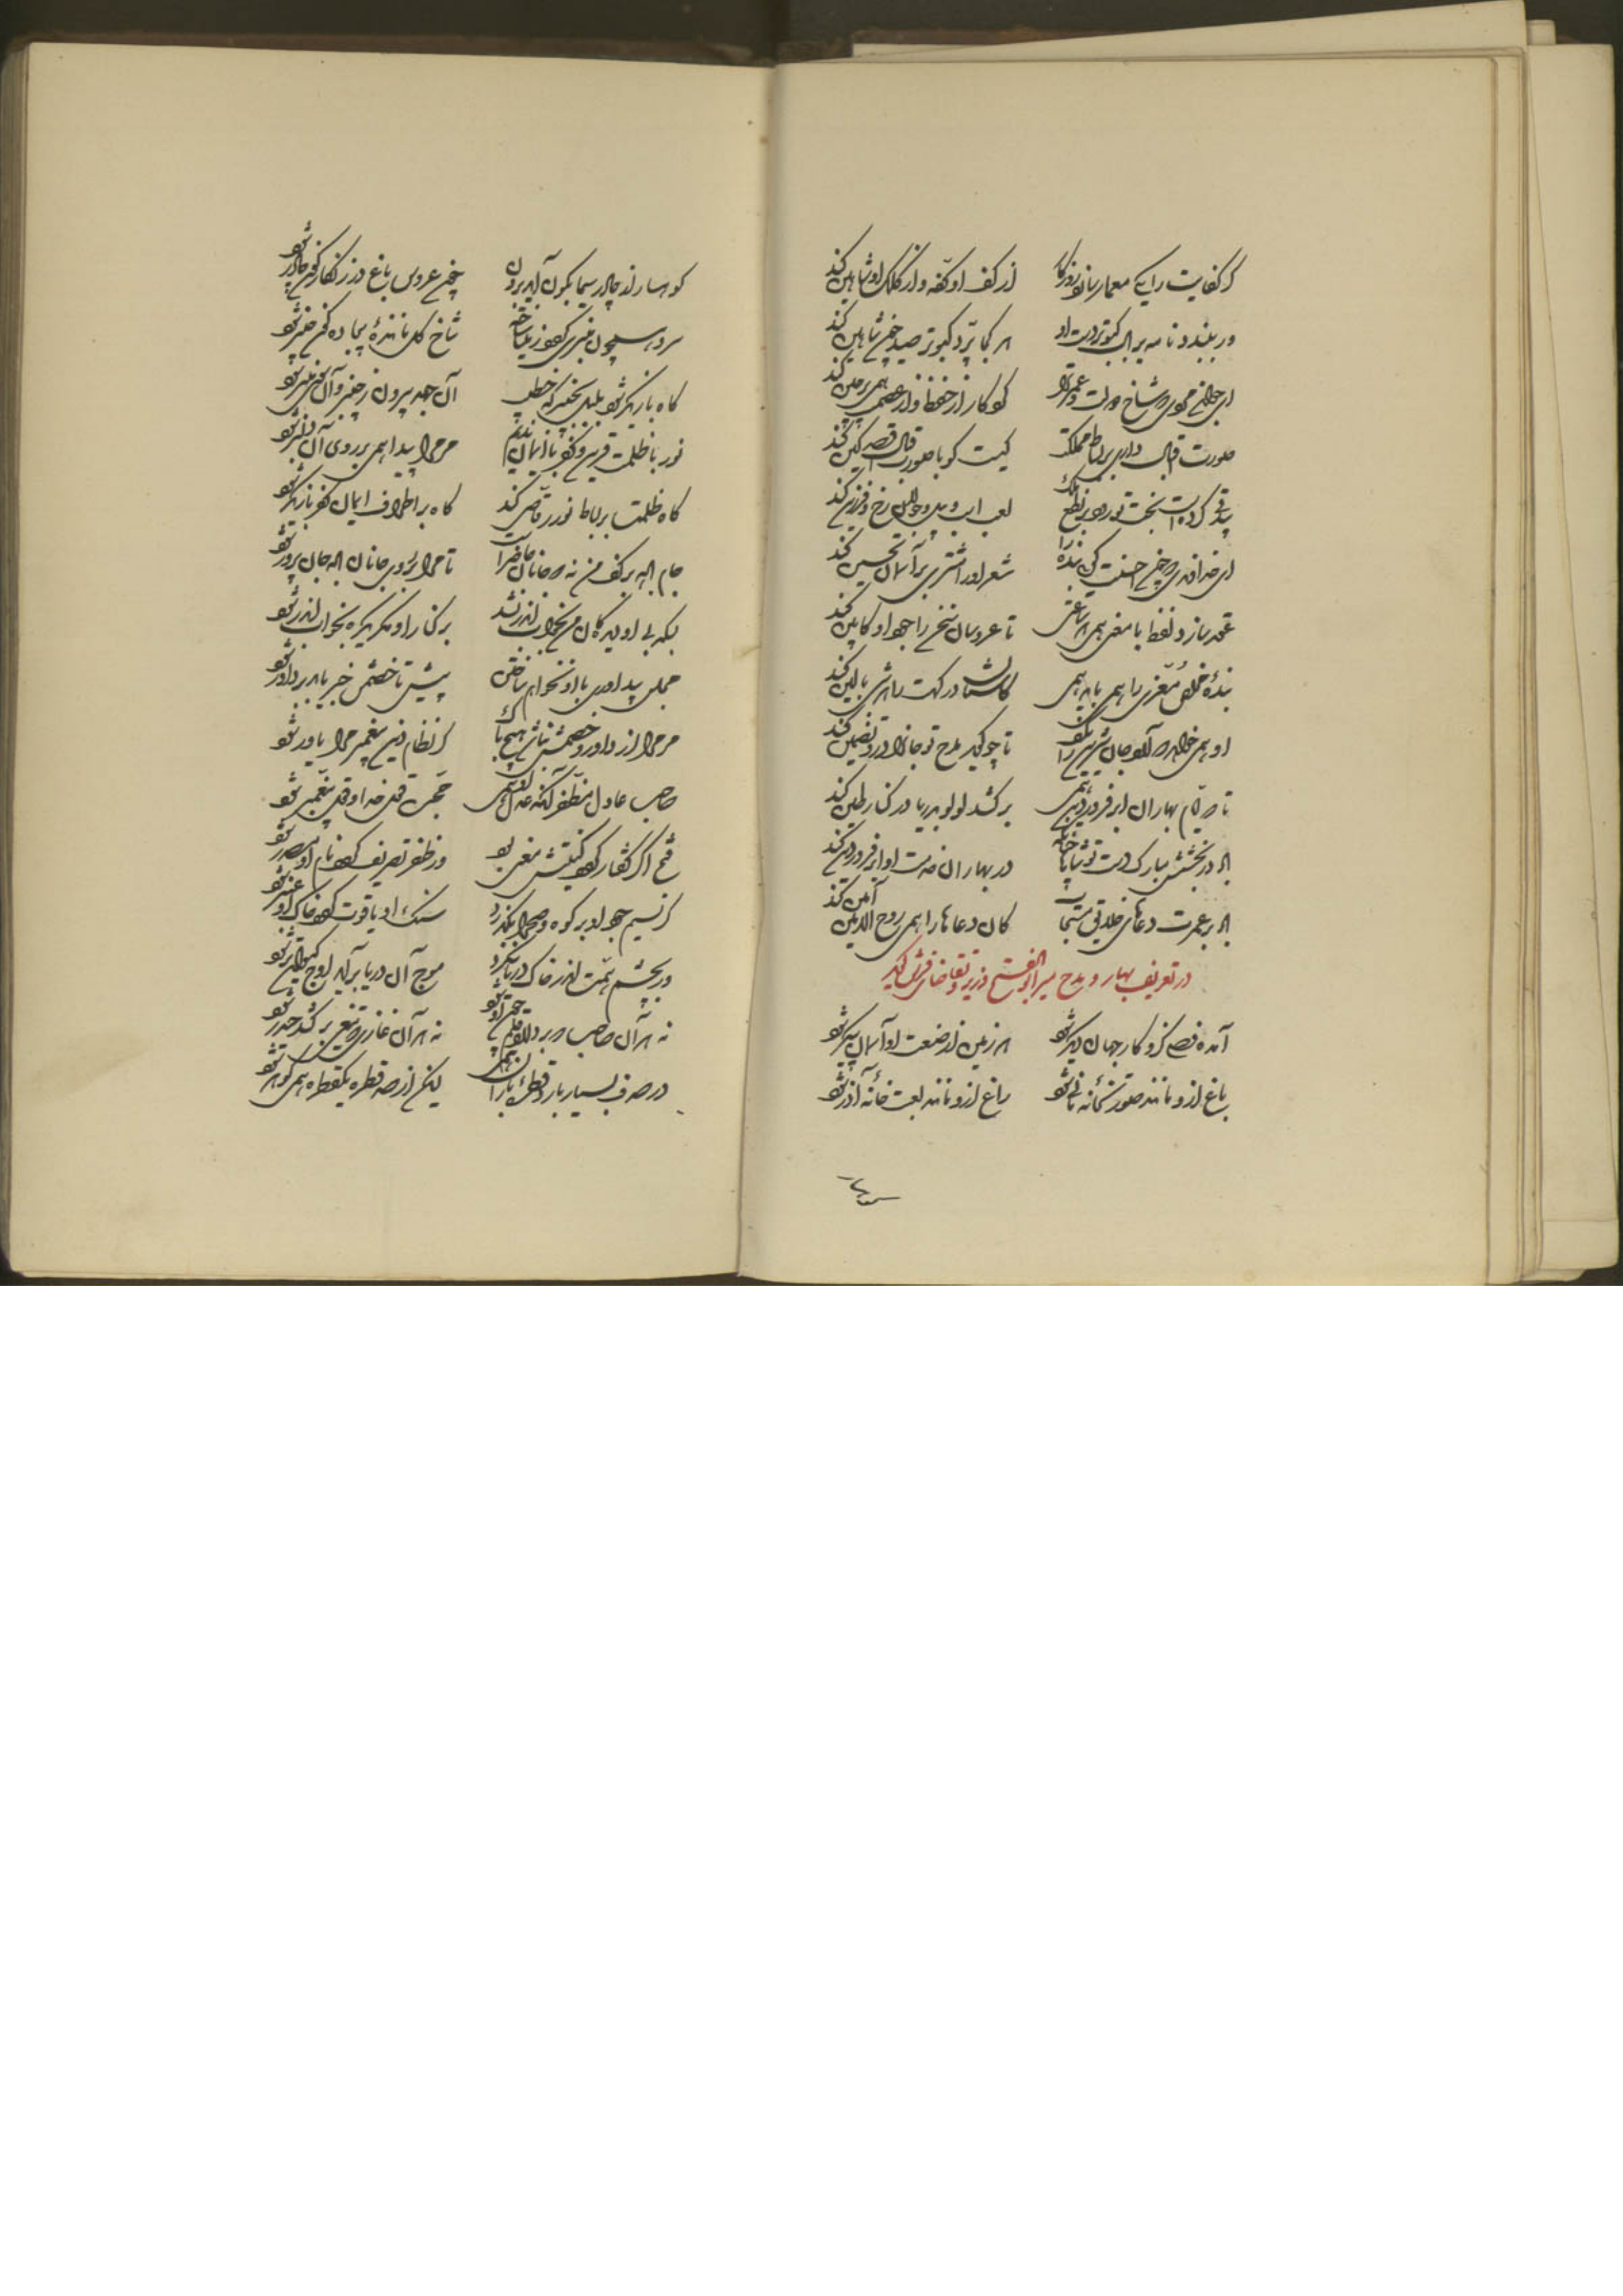 گر کفایت را یکی معمار سازد روزگار از کف او کفه و از کلک او شاهین کند
ور ببندد نامه بر بال کبوتر دست او هر کجا پرد کبوتر صید خویش شاهین کند
ای جوانی شاخ دولت کو کار از حفظ و از عصمت همی پرچین کند
صورت اقبال داری بر بساط مملکت کیست کو با صورت اقبال قصد کین کند
بیدقی کز دست بخت تو رود بر نطع ملک لعب اسب و پیل و رخ و فرزین کند
ای خداوندی که چون احسنت گویی بنده را شعر او را مشتری بر آسمان تحسین کند
عقد سازد لفظ با معنی همی هر ساعتی تا عروسان سخن را جود او کابین کند
بنده مخلص معزی را همی باید همی کآستان درگهت را هر شبی بالین کند
او همی خواهد که گوید جان شیرین را تا چو گوید مدح تو جان را در او تضمین کند
تا در ایام بهاران ابر فروردین همی برکشد لولو ز دریا در کنار طین کند
باد در بخشش مبارک دست تو تا در بهاران خدمت او ابر فروردین کند
باد بر عمرت دعای خلایق مستجاب کان دعاها را همی روح الامین آمین کند
در تعریف بهار و مدح میر ابوالفتح وزیر و تقاضای فرش گوید
آمد آن فصلی کزو کار جهان دیگر شود هر زمین از صنعت او آسمان پیکر شود
باغ ازو مانند صورتخانه مانی شود راغ ازو مانند لعبت خانه آذر شود
کوهسار از چادر سیمابگون آید برون چون عروس باغ در زنگارگون چادر شود
سرو همچون منبری گردد ز مینا ساخته شاخ گل ماننده بیجاده گون منبر شود
گاه باز بلبل همچنان که خطیب آن جهد بیرون ز چنبر و آن
نور با ظلمت قرین و کفر با ایمان ندیم مر مرا پیدا همی بر روی آن دلبر شود
گاه ظلمت بر بساط نور رقاصی کند گاه بر اطراف ایمان کفر بازیگر شود
جام باده بر کف من نه که جانان حاضر است تا مرا بر روی جانان باده جان پرور شود
بلکه بی او دیدگان من به خواب اندر نشد بر کنار او مگر دیده به خواب اندر شود
حمله بیداوری با او نخواهم ساختن پیش تا خصمش خبر یابد بر داور شود
مر مرا از داور و خصمش نباشد هیچ باک گر نظام دین پیغمبر مرا یاور شود
صاحب عادل مظفر آنکه عدل او همی حجت قول خدا و قول پیغمبر شود
فتح اگر گفتار گردد کنیتش معنی بود ور ظفر تصریف گردد نام او مصدر شود
گر نسیم جود او بر کوه و صحرا بگذرد سنگ او یاقوت گردد خاک او عنبر شود
ور به چشم همت اندر خاک دریا بنگرد موج آن دریا برآید اوج
نه هر آن صاحب که بردارد قلم چون او شود نه هر آن غازی که تیغی برکشد حیدر شود
در صدف بسیار بارد قطره باران همی لیکن از صد قطره یک قطره همی گوهر شود